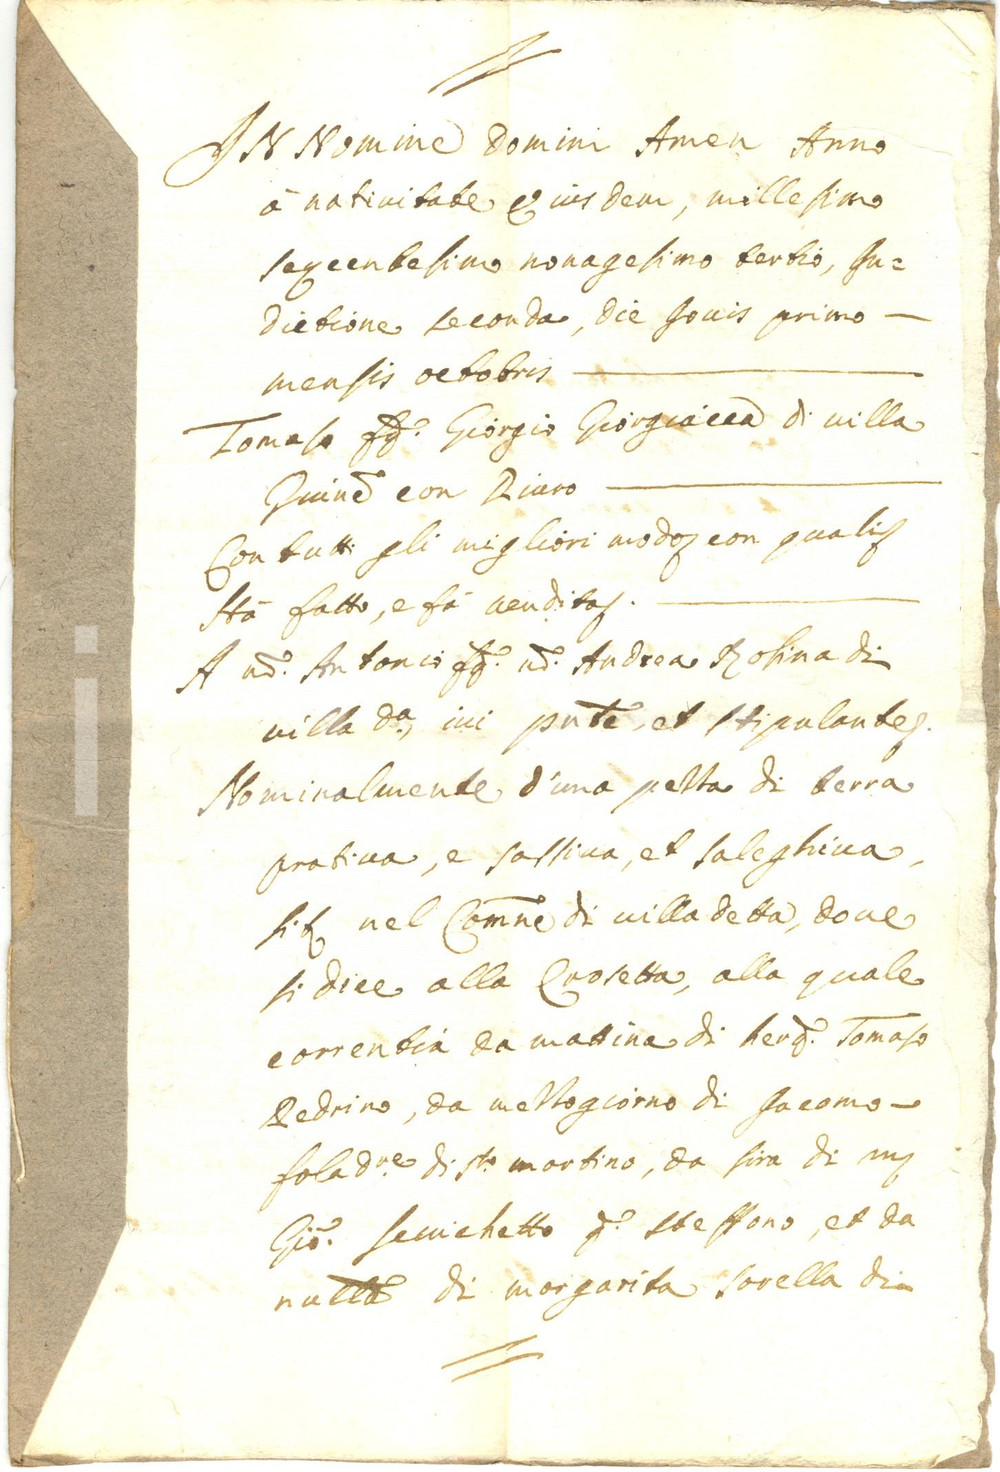 IN Nomine Domini Amen Anno
à nativitate eiusdem, millesimo
sexcentesimo nonagesimo tertio, In=
dictione seconda, die Jovis primo —
mensis octobris —
Tomaso fq. Giorgio di villa
con Rivro —
Con tutti gli migliori modo con quali
Hà fatto, e fà vendita. —
A md. Antonio fq. md. Andrea Rosina di
villa da, ivi pnte, et stipulante.
Nominalmente d'una pezza di terra
prativa, e sassiva, et saleghiva,
sit nel Comne di villa detta, dove
si dice alla Crosetta, alla quale
correntià da mattina di herq. Tomaso
Pedrino, da mezzogiorno di Jacomo —
foladre di sto martino, da sira di
Gio. q. steffano, et da
di margarita sorella di